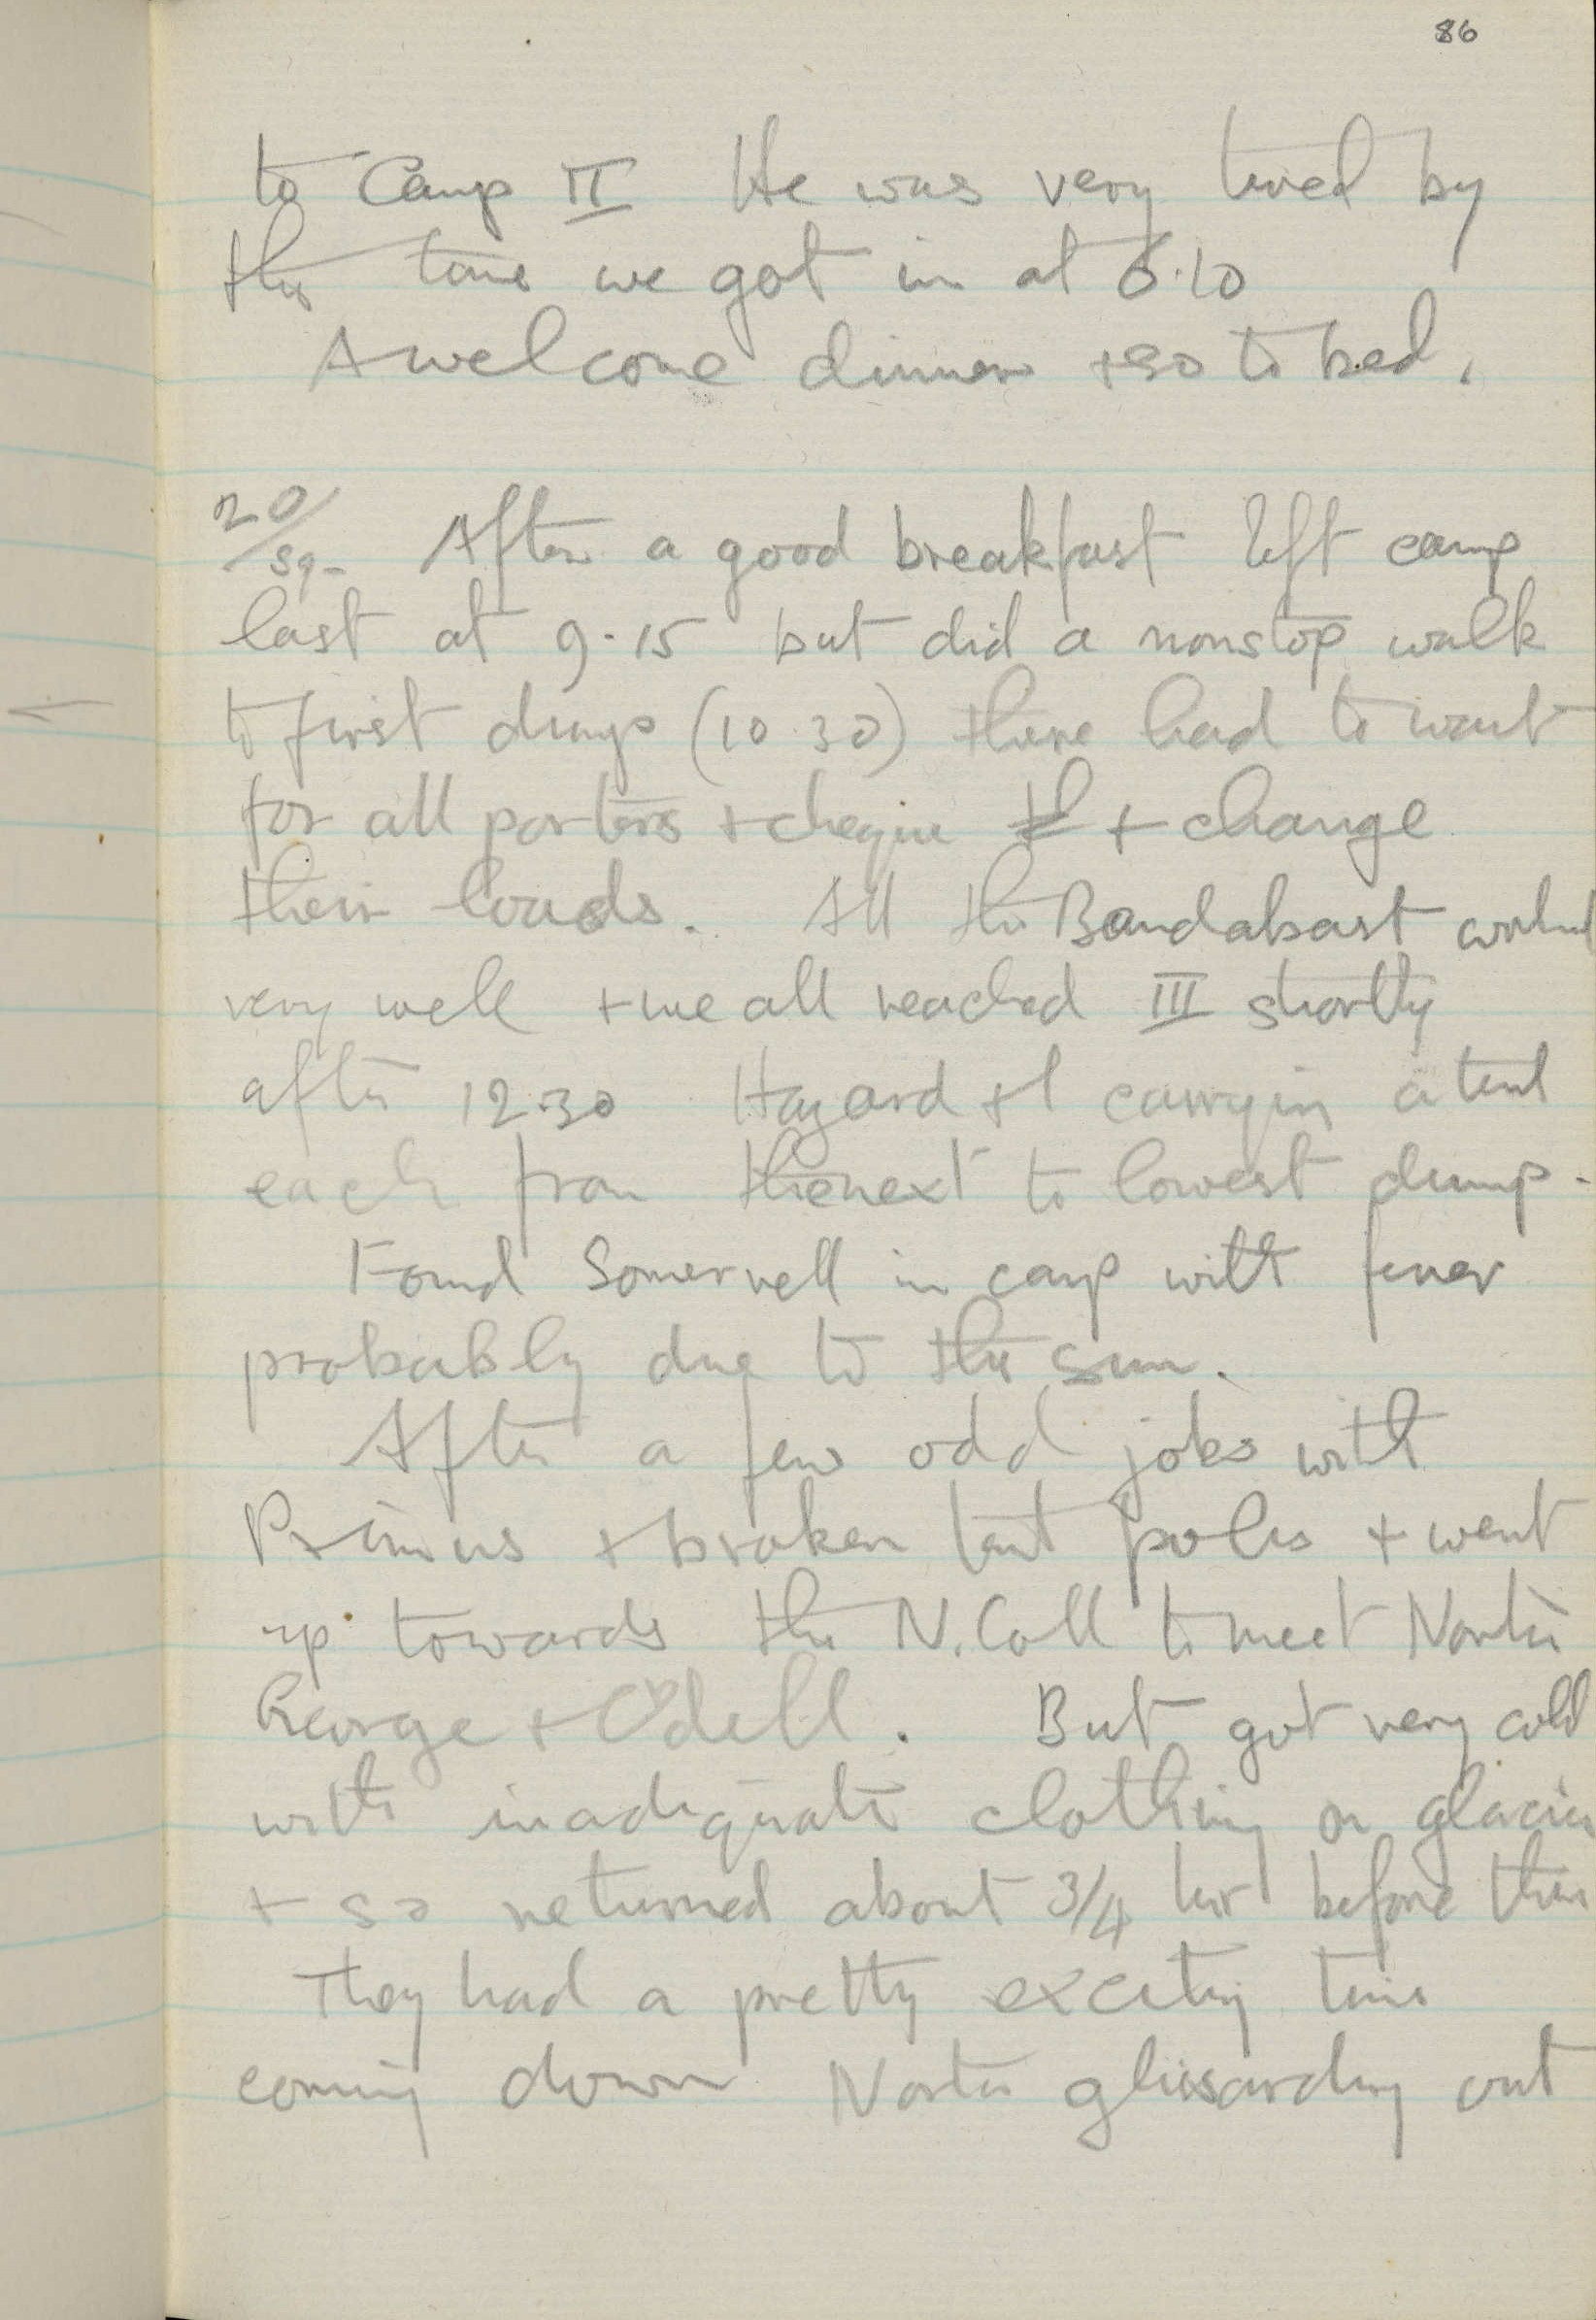 86
to Camp II He was very tired by
the time we got in at 6.10
A welcome dinner + so to bed.
20/59 After a good breakfast left camp
last at 9.15 but did a nonstop walk
to first dump (10 30) there had to wait
for all porters + cheque + change
their loads. All the Bandabast worked
very well + we all reached III shortly
after 12.30 Hazard + I carrying a tent
each from the next to lowest dump.
Found Somervell in camp with fever
probably due to the sun.
After a few odd jobs with
Primus + broken tent poles + went
up towards the N. Coll to meet Norton
George + Odell. But got very cold
with inadequate clothing on glacier
+ so returned about 3/4 hr before them
They had a pretty exciting time
coming down Norton glissarding out